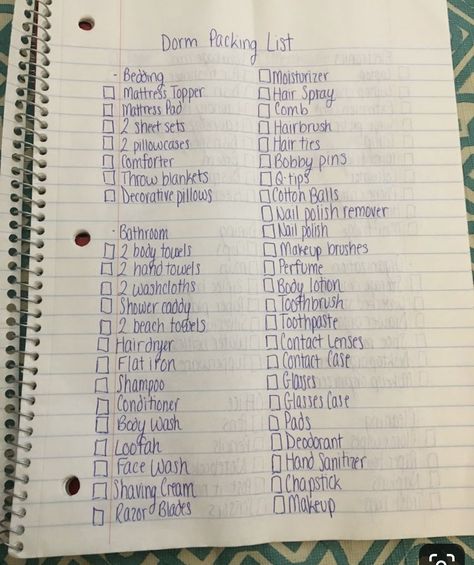 Dorm Packing List
- Bedding
Mattress Topper
Mattress Pad
2 sheet sets
2 pillowcases
Comforter
Throw blankets
Decorative pillows
- Bathroom
2 body towels
2 hand towels
2 washcloths
Shower caddy
2 beach towels
Hairdryer
Flat iron
Shampoo
Conditioner
Body Wash
Loofah
Face Wash
Shaving Cream
Razor Blades
Moisturizer
Hair Spray
Comb
Hairbrush
Hair ties
Bobby pins
Q-tips
Cotton Balls
Nail polish remover
Nail polish
Makeup brushes
Perfume
Body lotion
Toothbrush
Toothpaste
Contact Lenses
Contact Case
Glasses
Glasses Case
Pads
Deodorant
Hand Sanitizer
Chapstick
Makeup